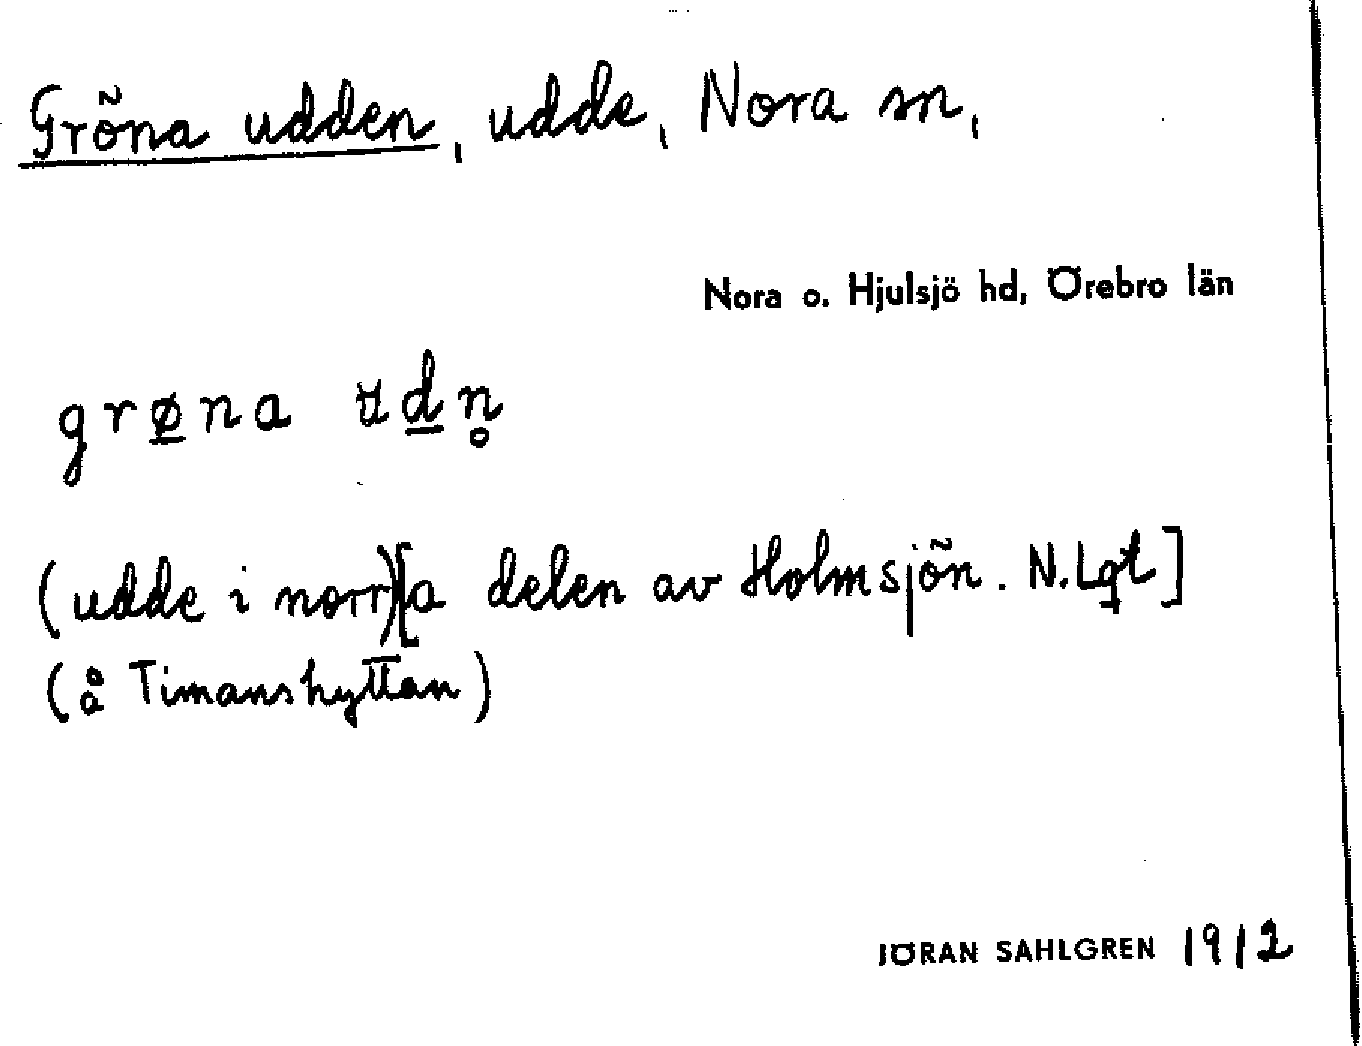 Gröna udden, udde, Nora sn,
Nora o. Hjulsjö hd, Örebro län
grø̲na ʉd̲n̥
(udde i norr)[a delen av Holmsjön. N.Lgt]
(å Timanshyttan)
JÖRAN SAHLGREN 1912